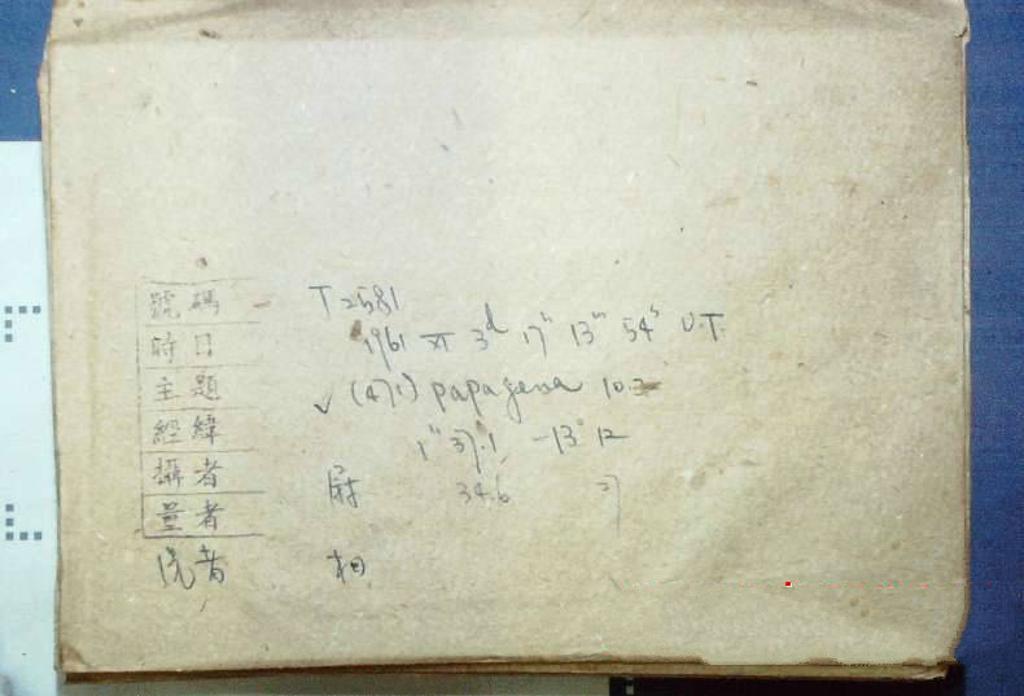 號碼 T2581
時日 1961 XI 3d 17h 13m 54s U.T.
主題 ✓ (471) papagena 10.2
經緯 1h 37.1 -13° 12
攝者 34.6
量者
洗者